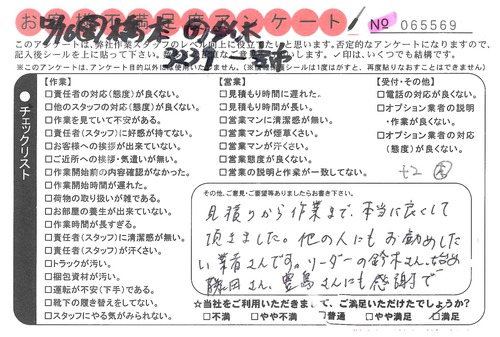 お客様満足度アンケート
No 065569
このアンケートは、弊社作業スタッフのレベル向上に役立たいと思います。否定的なアンケートになりますので、
記入後シールを上に貼って下さい。
✓印は、いくつでも結構です。
※このアンケートは、アンケート目的以外には使用いたしません。(※情報保護シールは1度はがすと、再度貼りなおすことはできません)
●チェックリスト
【作業】
□責任者の対応(態度)が良くない。
□他のスタッフの対応(態度)が良くない。
□作業を見ていて不安がある。
□責任者(スタッフ)に好感が持てない。
□お客様への挨拶が出来ていない。
□ご近所への挨拶・気遣いが無い。
□作業開始前の内容確認がなかった。
□作業開始時間が遅れた。
□荷物の取り扱いが雑である。
□お部屋の養生が出来ていない。
□作業時間が長すぎる。
□責任者(スタッフ)に清潔感が無い。
□責任者(スタッフ)が汗くさい。
□トラックが汚い。
□梱包資材が汚い。
□運転が不安(下手)である。
□靴下の履き替えをしてない。
□スタッフにやる気がみられない。
【営業】
□見積もり時間に遅れた。
□見積もり時間が長い。
□営業マンに清潔感が無い。
□営業マンが煙草くさい。
□営業マンが汗くさい。
□営業態度が良くない。
□営業の説明と作業が一致してない。
【受付・その他】
□電話の対応が良くない。
□オプション業者の説明
・作業が良くない。
□オプション業者の対応
(態度)が良くない。
その他、ご意見・ご要望等ありましたらお書き下さい。
見積りから作業まで、本当に良くして
頂きました。他の人にもお勧めした
い業者さんです。リーダーの鈴木さん、始め
藤田さん、豊島さんにも感謝で
☆当社をご利用いただきまして、ご満足いただけたでしょうか?
□不満 □やや不満 □普通 □やや満足 □満足